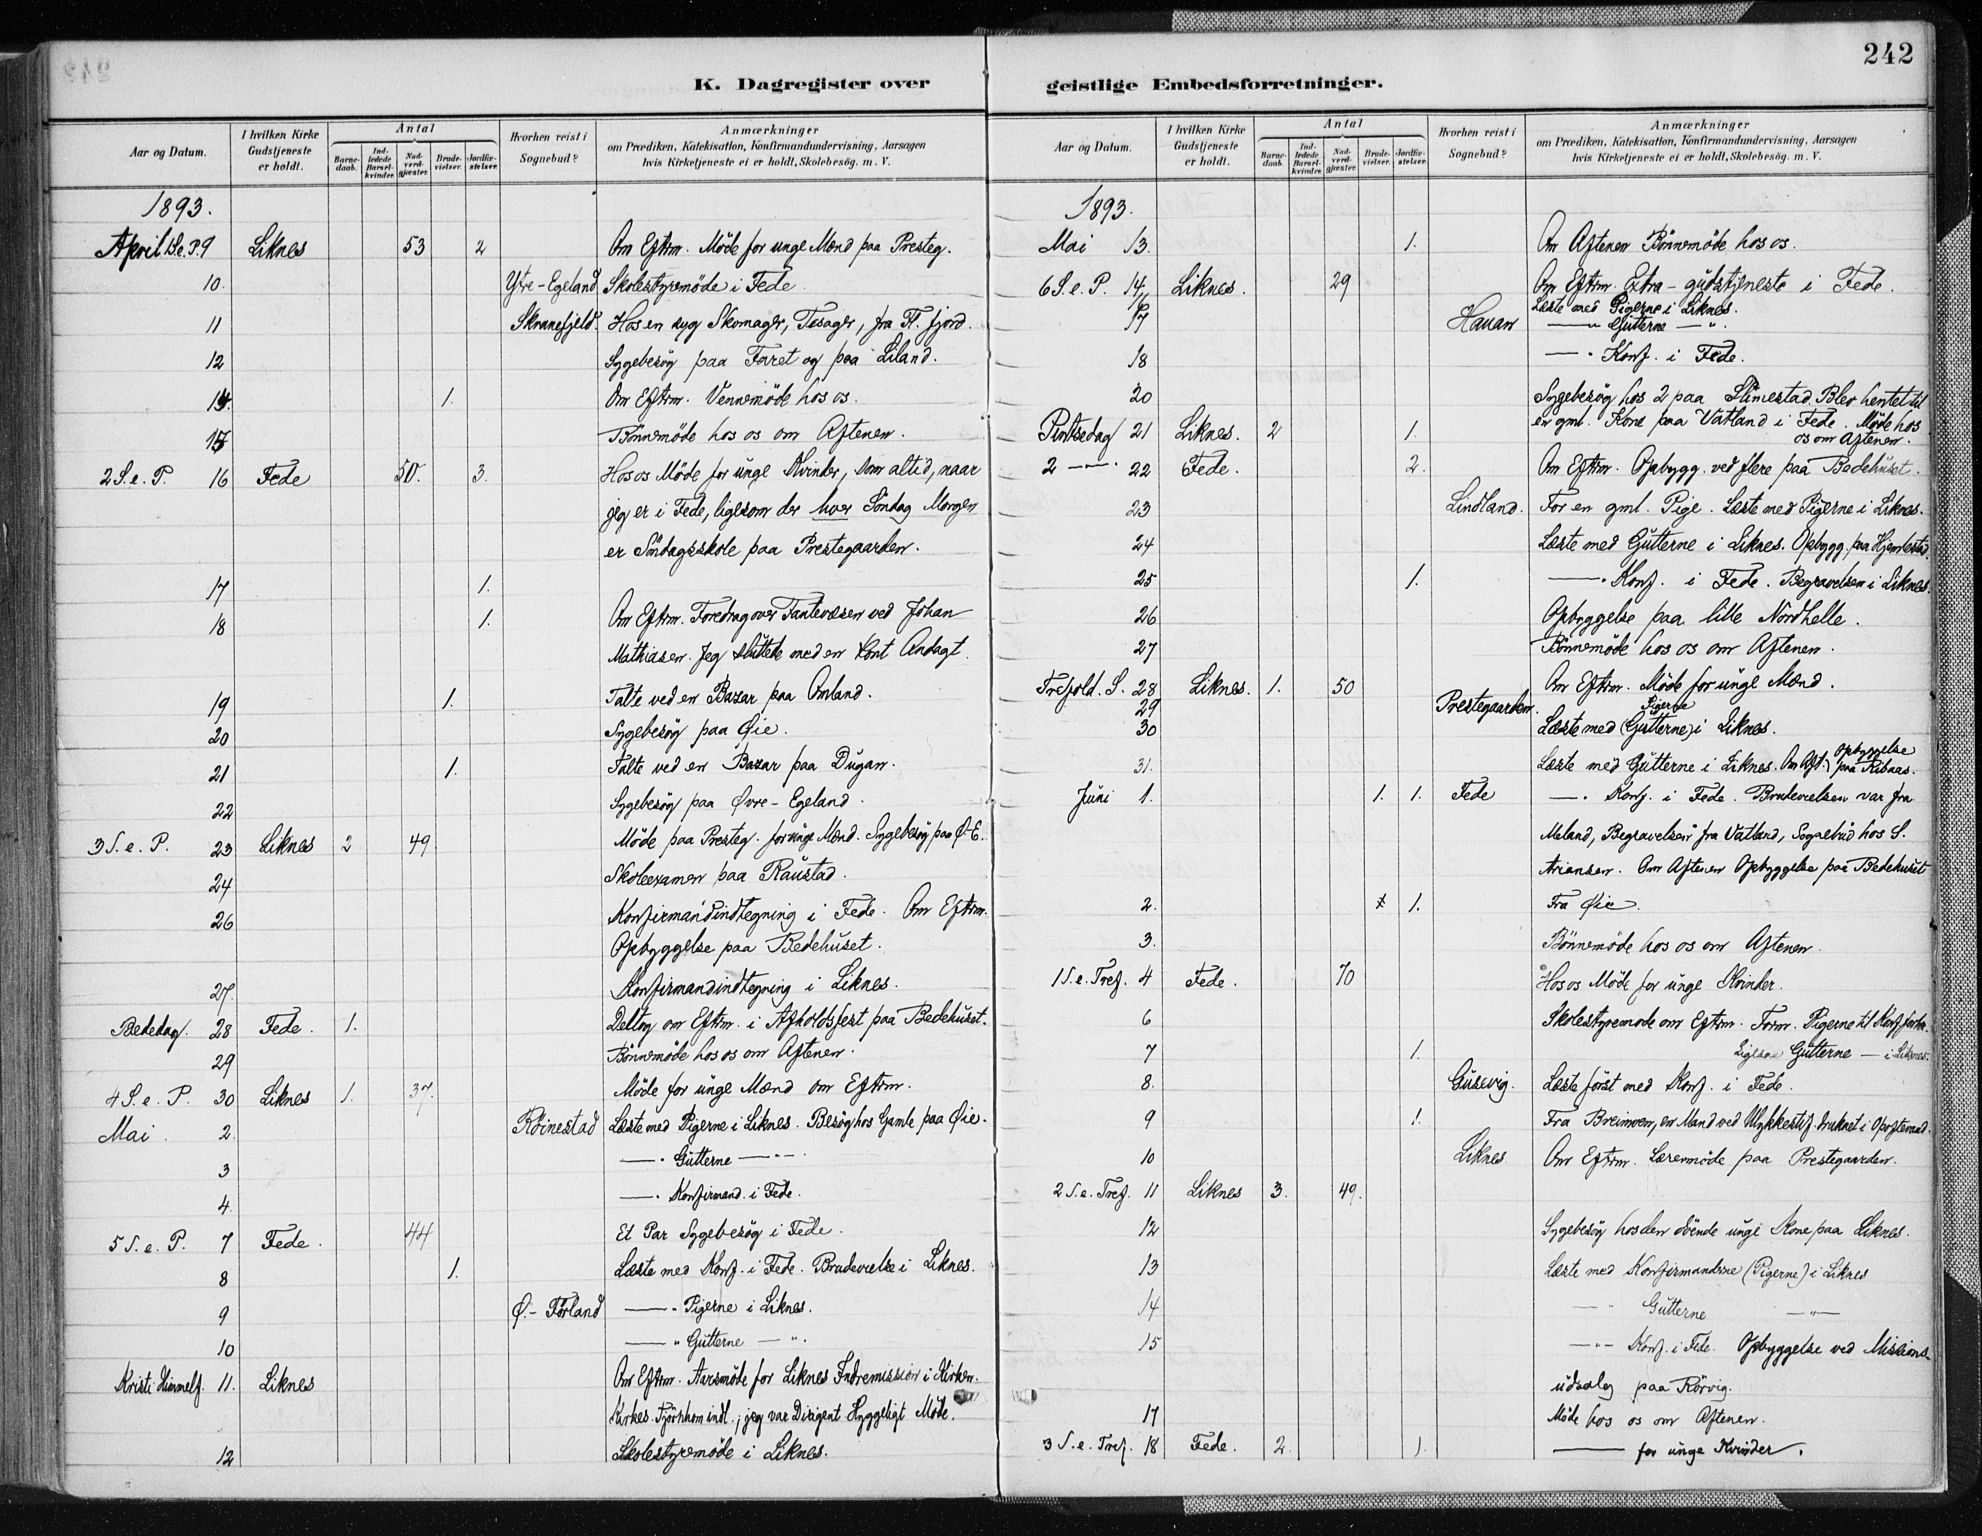 242
K. Dagregister over geistlige Embedsforretninger.
Aar og Datum. I hvilken Kirke Gudstjeneste er holdt. Antal Barnedaab. Indledede Barselkvinder. Nadverdgjæster. Brudevielser. Jordfæstelser. Hvorhen reist i Sognebud? Anmærkninger om Prædiken, Katekisation, Konfirmandundervisning, Aarsagen hvis Kirketjeneste ei er holdt, Skolebesøg. m. V.
1893.
April 1 S.e.P. 9 Liknes 53 2 Om Eftrm. Møde for unge Mænd paa Presteg.
10. Ytre-Egeland Skolestyremøde i Fede.
11 Skranefjeld. Hos en syg Skomager, Tosager, fra Fl. fjord.
12 Sygebesøg paa Faret og paa Liland.
14. 1. Om Eftrm. Vennemøde hos os.
15 Bønnemøde hos os om Aftenen.
2 S. e. P. 16 Fede 50. 3. Hos os Møde for unge Kvinder, som altid, naar
jeg er i Fede, ligesom der hver Søndag Morgen
er Søndagsskole paa Prestegaarden.
17 1.
18 1. Om Eftrm. Foredrag over Fantevæsen ved Johan
Mathiasen. Jeg sluttede med en kort Andagt.
19 1. Talte ved en Bazar paa Omland.
20 Sygebesøg paa Øie.
21 1. Talte ved en Bazar paa Dugan.
22 Sygebesøg paa Øvre-Egeland.
3 S. e. P. 23 Liknes 2 49 Møde paa Presteg. for unge Mænd. Sygebesøg paa Ø-E.
24 Skoleexamen paa Raustad.
26 Konfirmandindtegning i Fede. Om Eftrm.
Opbyggelse paa Bedehuset.
27 Konfirmandindtegning i Liknes.
Bededag. 28 Fede. 1. Deltog om Eftrm. i Afholdsfest paa Bedehuset.
29 Bønnemøde hos os om Aftenen.
4 S. e. P. 30 Liknes 1. 37. Møde for unge Mænd om Eftrm.
Mai. 2. Røinestad Læste med Pigerne i Liknes. Besøg hos Gamle paa Øie.
3 —„— Gutterne —„—
4. —„— Konfirmand. i Fede.
5 S. e. P. 7 Fede. 44 Et Par Sygebesøg i Fede.
8 1. Læste med Konf. i Fede. Brudevielse i Liknes.
9 Ø.-Førland —„— Pigerne i Liknes.
10 —„— Gutterne —„—
Kristi Himmelf. 11. Liknes Om Eftrm. Aarsmøde for Liknes Indremission i Kirken.
Kirkes. indl., jeg var Dirigent Hyggeligt Møde.
12 Skolestyremøde i Liknes.
Aar og Datum. I hvilken Kirke Gudstjeneste er holdt. Antal Barnedaab. Indledede Barselkvinder. Nadverdgjæster. Brudevielser. Jordfæstelser. Hvorhen reist i Sognebud? Anmærkninger om Prædiken, Katekisation, Konfirmandundervisning, Aarsagen hvis Kirketjeneste ei er holdt, Skolebesøg. m. V.
1893.
Mai 13. 1. Om Aftenen Bønnemøde hos os.
6 S. e. P. 14 Liknes. 29 Om Eftrm. Extra-gudstjeneste i Fede.
16 Læste med Pigerne i Liknes.
17 Hauan —„— Gutterne —„—
18 —„— Konf. i Fede.
20 Sygebesøg hos 2 paa Slimestad. Blev hentet til
Pintsedag 21 Liknes. 2 1. en gml. Kone paa Vatland i Fede. Møde hos
os om Aftenen.
2 —„— 22 Fede. 2. Om Eftrm. Opbygg. ved flere paa Bedehuset.
23 Lindland. For en gml. Pige. Læste med Pigerne i Liknes.
24 Læste med Gutterne i Liknes. Opbygg. paa Hjemlestad.
25 1. —„— Konf. i Fede. Begravelsen i Liknes.
26 Opbyggelse paa lille Nordhelle.
27 Bønnemøde hos os om Aftenen.
Trefold. S. 28 Liknes. 1. 50 Om Eftrm. Møde for unge Mænd.
29 Prestegaarden. Pigerne
30 Læste med (Gutterne) i Liknes.
31. Læste med Gutterne i Liknes. Om Aft. Opbyggelse paa Ribnæs.
Juni 1. 1. 1. Fede —„— Konf. i Fede. Brudevielsen var fra
Meland, Begravelsen fra Vatland, Sognebud hos S.
Ariansen. Om Aftenen Opbyggelse paa Bedehuset
2. 1. Fra Øie.
3. Bønnemøde hos os om Aftenen.
1 S. e. Tref. 4 Fede. 70 Hos os Møde for unge Kvinder.
6 Skolestyremøde om Eftrm. Form. Pigerne til Konf. forbe.
7 1. Ligesaa Gutterne — i Liknes.
8. Gusevig. Læste først med Konf. i Fede.
9 1. Fra Breimoen, en Mand ved Ulykkestif. druknet i
10 Liknes. Om Eftrm. Læremøde paa Prestegaarden.
2 S. e. Tref. 11 Liknes 3. 49.
12 Sygebesøg hos den døende unge Kone paa Liknes.
13 Læste med Konfirmanderne (Pigerne) i Liknes
14 —„— Gutterne —„—
15 —„— Konf. i Fede. Opbyggelse ved Missions-
udsalg paa Rørvig.
17 Møde hos os om Aftenen.
3 S. e. Tref. 18 Fede. 2. 1. —— for unge Kvinder.